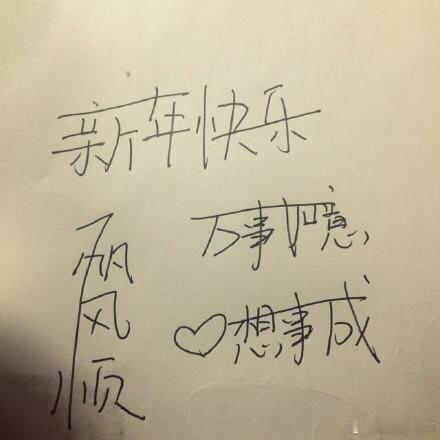 新年快乐
一帆风顺
万事如意
♡想事成